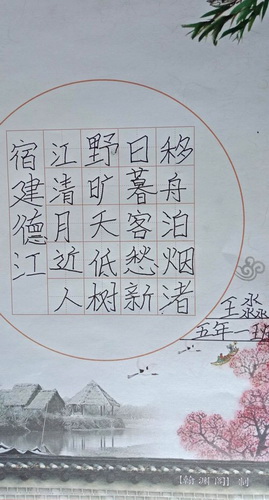 移舟泊烟渚
日暮客愁新
野旷天低树
江清月近人
宿建德江
王淼淼
五年一班
【翰渊阁】制